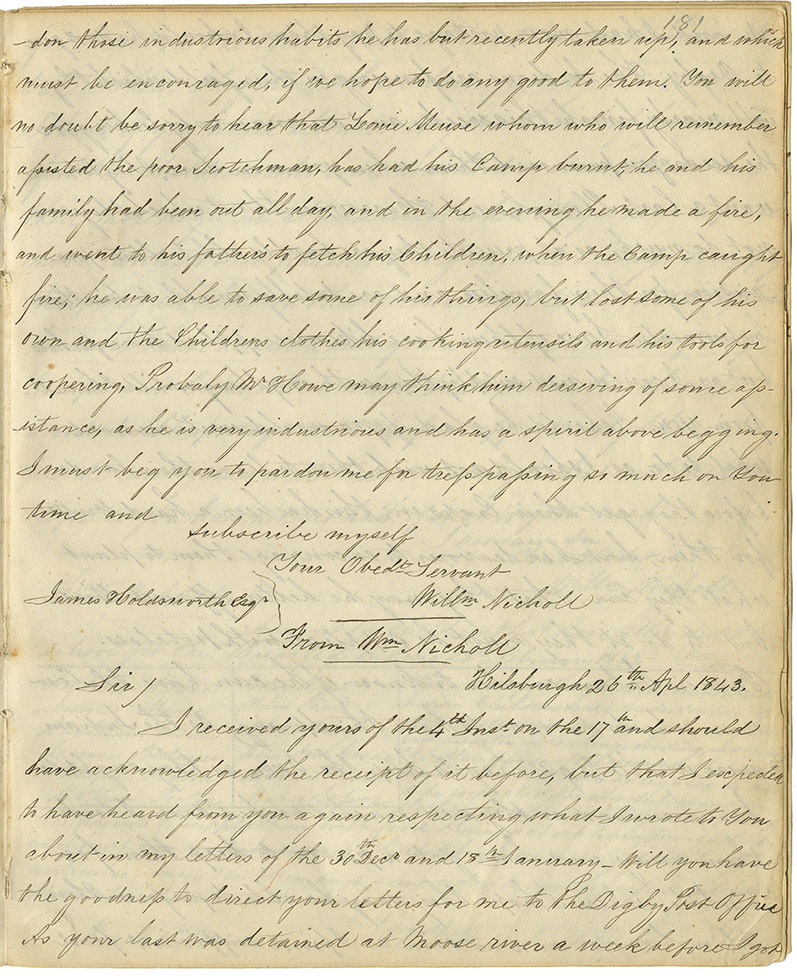 181
-don those industrious habits he has but recently taken up, and which
must be encouraged, if we hope to do any good to them. You will
no doubt be sorry to hear that Lonie Meuse whom who will remember
assisted the poor Scotchman, has had his Camp burnt; he and his
family had been out all day, and in the evening he made a fire,
and went to his father's to fetch his Children, when the Camp caught
fire; he was able to save some of his things, but lost some of his
own and the Childrens clothes his cooking utensils and his tools for
coopering, Probaly Mr Howe may think him derserving of some as-
istance, as he is very industrious and has a spirit above begging.
I must beg you to pardon me for tresspassing so much on You
time and
subscribe myself
Your Obedt Servant
Willm Nicholl
James Holdsworth Esqr
From Wm Nicholl
Hilsburgh 26th Apl 1843.
Sir/
I received yours of the 4th Inst on the 17th and should
have acknowledged the receipt of it before, but that I expected
to have heard from you again respecting what I wrote to You
about in my letters of the 30th Decr and 18th January - Will you have
the goodness to direct your letters for me to the Digby Post Office
As your last was detained at Moose river a week before I got